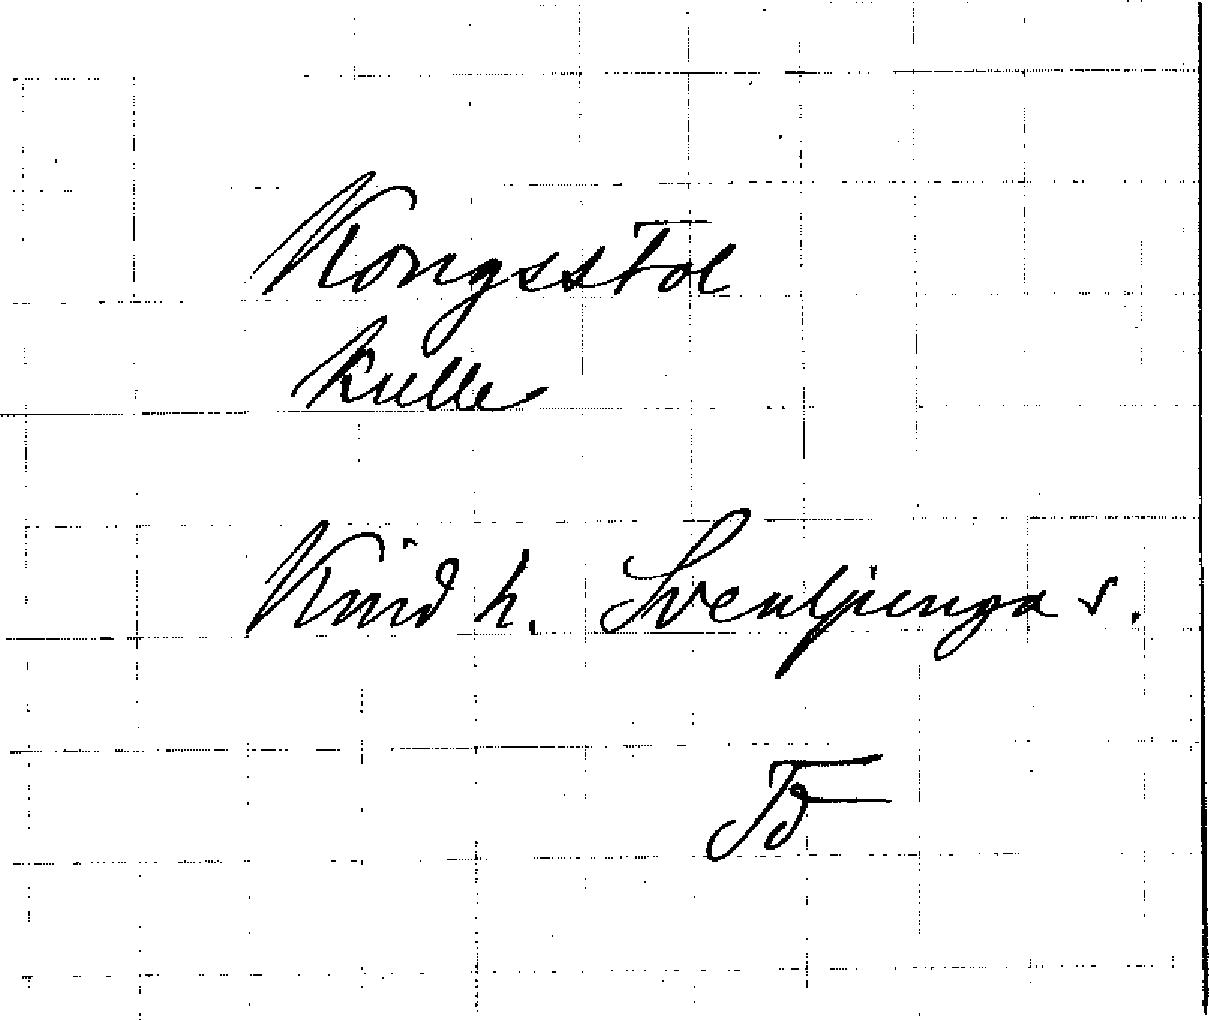 Kongsstol
kulle
Kind h. Svenljunga s.